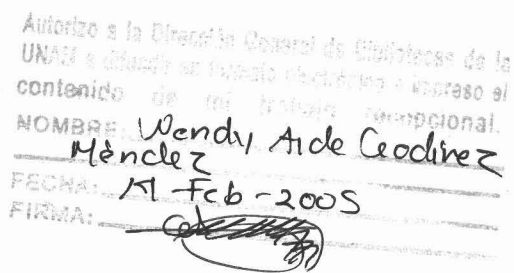 Autorizo a la Dirección General de Bibliotecas de la
UNAM a difundir en formato electrónico e impreso el
contenido de mi trabajo recepcional.
NOMBRE: Wendy Aide Godinez
Méndez
FECHA: 17-Feb-2005
FIRMA: